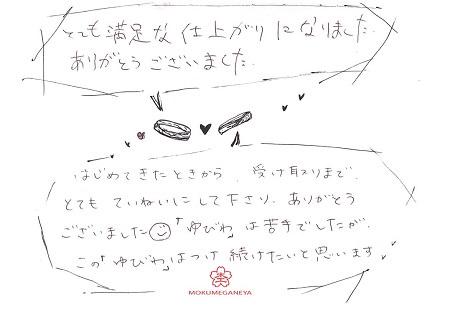 とても満足な仕上がりになりました.
ありがとうございました.
はじめてきたときから、受け取りまで、
とてもていねいにして下さり、ありがとう
ございました「ゆびわ」は苦手でしたが、
この「ゆびわ」はつけ続けたいと思います
MOKUMEGANEYA